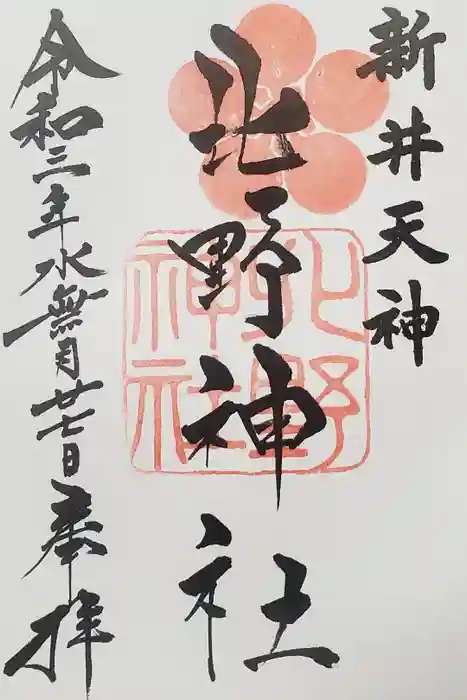 新井天神
北野神社
北野
神社
令和三年水無月廿七日奉拝